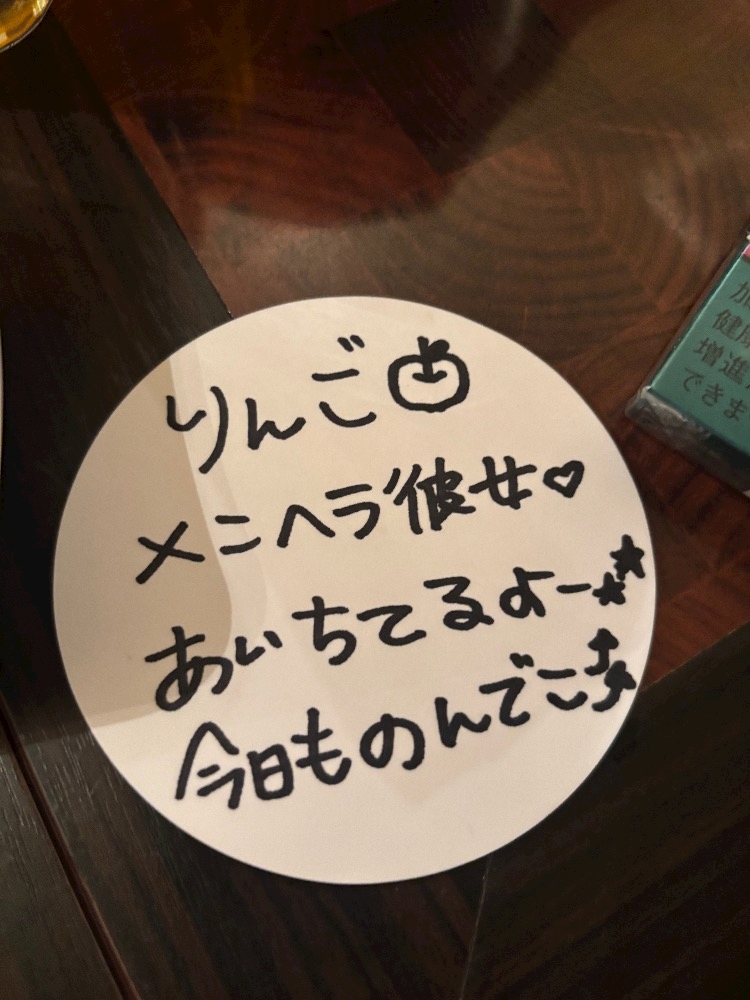 りんご
メンヘラ彼女♡
あいちてるよー★★
今日ものんでこ⤴⤴
健康
増進
できま